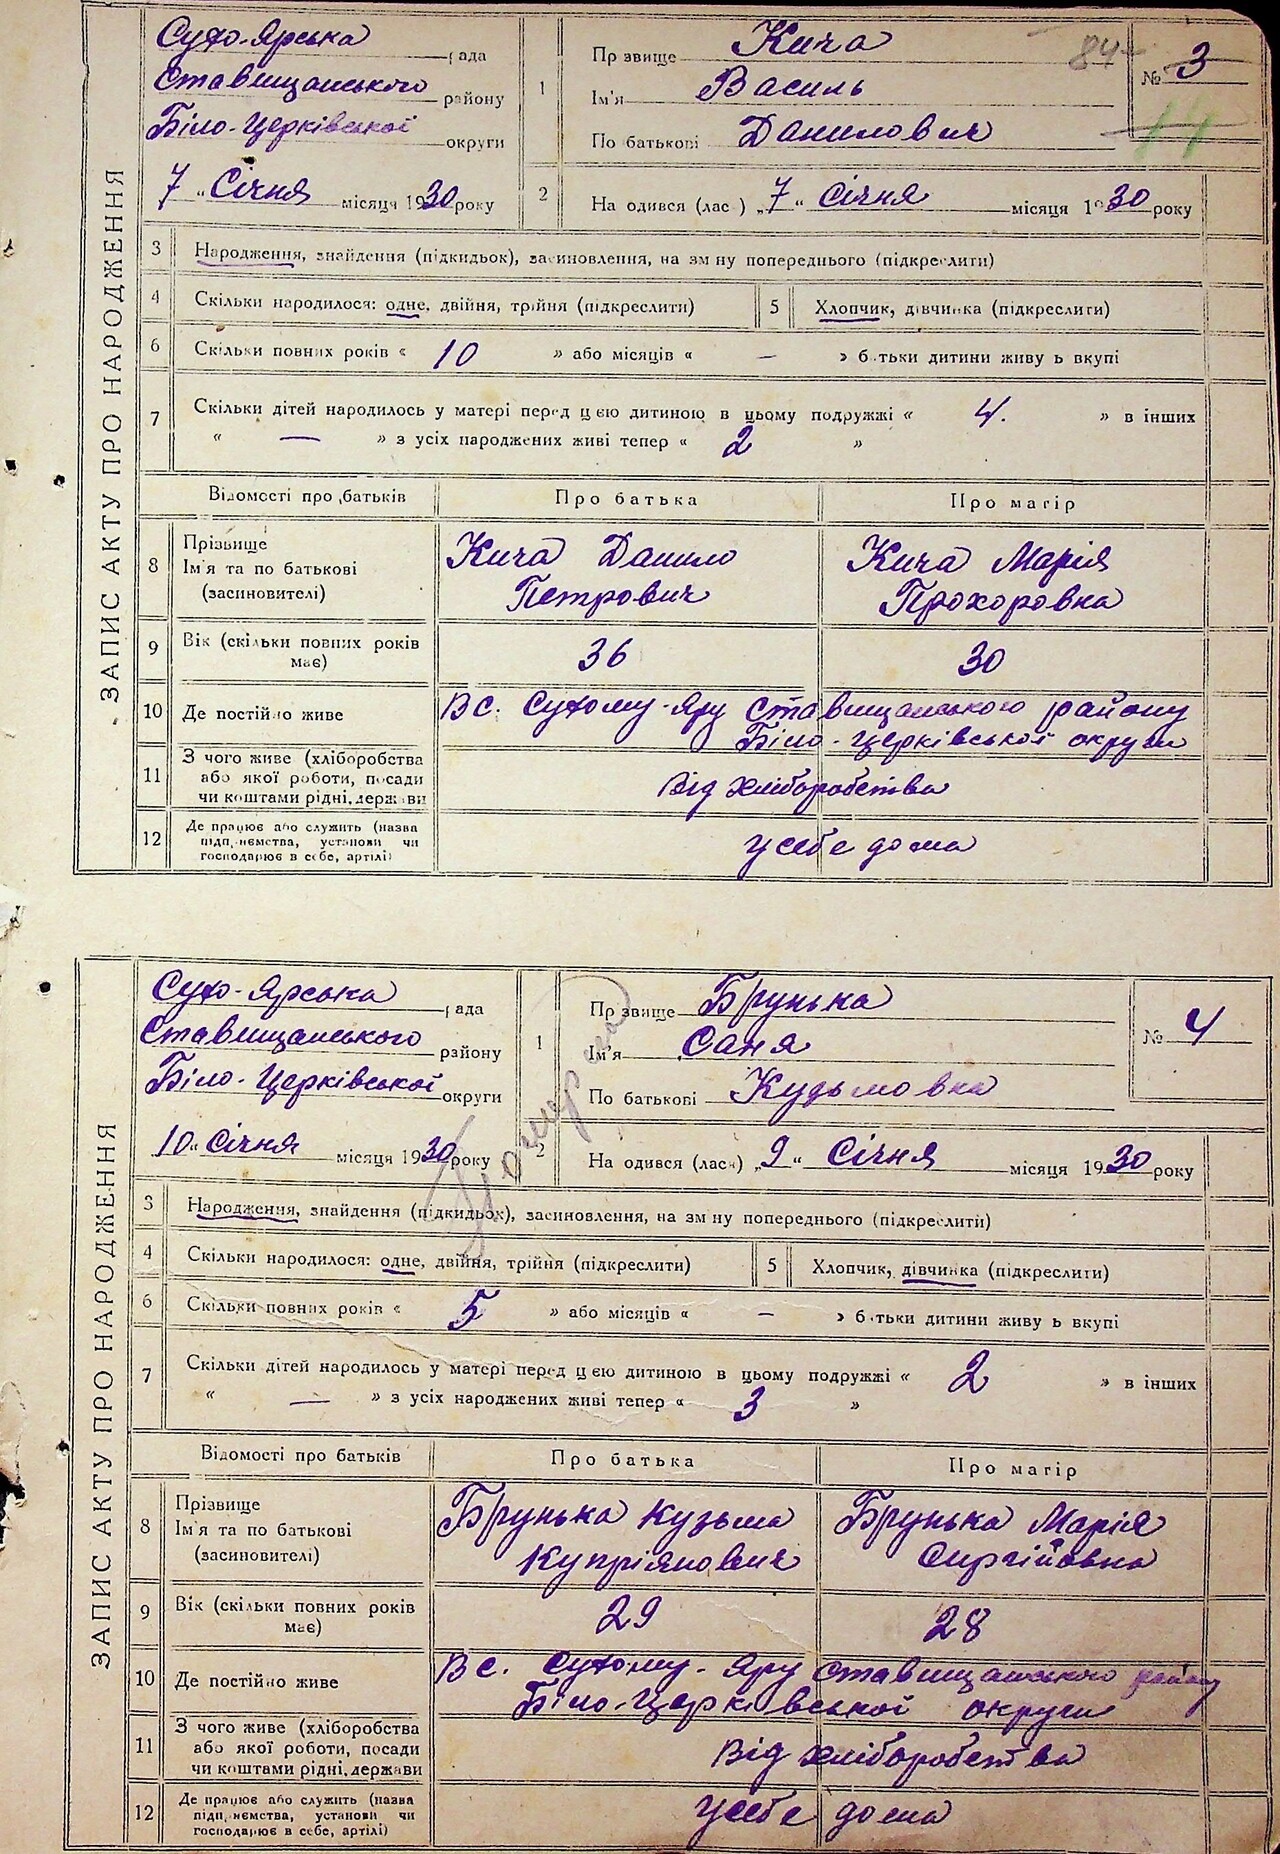 ЗАПИС АКТУ ПРО НАРОДЖЕННЯ
Сухо-Ярська рада
Ставищанського району
Біло-Церківської округи
7 „ Січня місяця 1930 року
1 Прізвище Кича
Ім'я Василь
По батькові Данилович
84
№ 3
14
2 Народився (лась) „7“ Січня місяця 1930 року
3 Народження, знайдення (підкидьок), засиновлення, на зміну попереднього (підкреслити)
4 Скільки народилося: одне, двійня, трійня (підкреслити) 5 Хлопчик, дівчинка (підкреслити)
6 Скільки повних років « 10 » або місяців « — » батьки дитини живуть вкупі
7 Скільки дітей народилось у матері перед цією дитиною в цьому подружжі « 4. » в інших
« — » з усіх народжених живі тепер « 2 »
Відомості про батьків Про батька Про матір
8 Прізвище
Ім'я та по батькові
(засиновителі)
Кича Данило
Петрович
Кича Марія
Прохоровна
9 Вік (скільки повних років
має)
36 30
10 Де постійно живе
В с. Сухому-Яру Ставищанського району
Біло-Церківської округи
11 З чого живе (хліборобства
або якої роботи, посади
чи коштами рідні, держави
Від хліборобства
12 Де працює або служить (назва
підприємства, установи чи
господарює в себе, артілі)
у себе дома
ЗАПИС АКТУ ПРО НАРОДЖЕННЯ
Сухо-Ярська рада
Ставищанського району
Біло-Церківської округи
10 „ Січня місяця 1930 року
1 Прізвище Брунька
Ім'я Саня
По батькові Кудьмовна
№ 4
2 Народився (лась) „9“ Січня місяця 1930 року
3 Народження, знайдення (підкидьок), засиновлення, на зміну попереднього (підкреслити)
4 Скільки народилося: одне, двійня, трійня (підкреслити) 5 Хлопчик, дівчинка (підкреслити)
6 Скільки повних років « 5 » або місяців « — » батьки дитини живуть вкупі
7 Скільки дітей народилось у матері перед цією дитиною в цьому подружжі « 2 » в інших
« — » з усіх народжених живі тепер « 3 »
Відомості про батьків Про батька Про матір
8 Прізвище
Ім'я та по батькові
(засиновителі)
Брунька Кузьма
Купріянович
Брунька Марія
Сиргійовна
9 Вік (скільки повних років
має)
29 28
10 Де постійно живе
В с. Сухому-Яру Ставищанського району
Біло-Церківської округи
11 З чого живе (хліборобства
або якої роботи, посади
чи коштами рідні, держави
Від хліборобства
12 Де працює або служить (назва
підприємства, установи чи
господарює в себе, артілі)
у себе дома